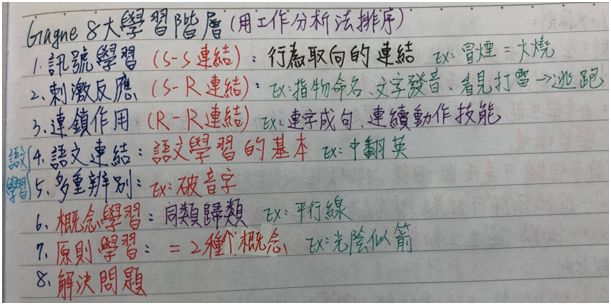 Gagne 8大學習階層(用工作分析法排序)
1.訊號學習 (S-S連結): 行為取向的連結 EX: 冒煙=火燒
2.刺激反應 (S-R連結): EX:指物命名、文字發音、看見打雷→逃跑
3.連鎖作用 (R-R連結) EX: 連字成句、連續動作技能
語文學習
4.語文連結: 語文學習的基本 EX: 中翻英
5.多重辨別: EX: 破音字
6.概念學習: 同類歸類 EX: 平行線
7.原則學習: =2種個概念 EX: 光陰似箭
8.解決問題